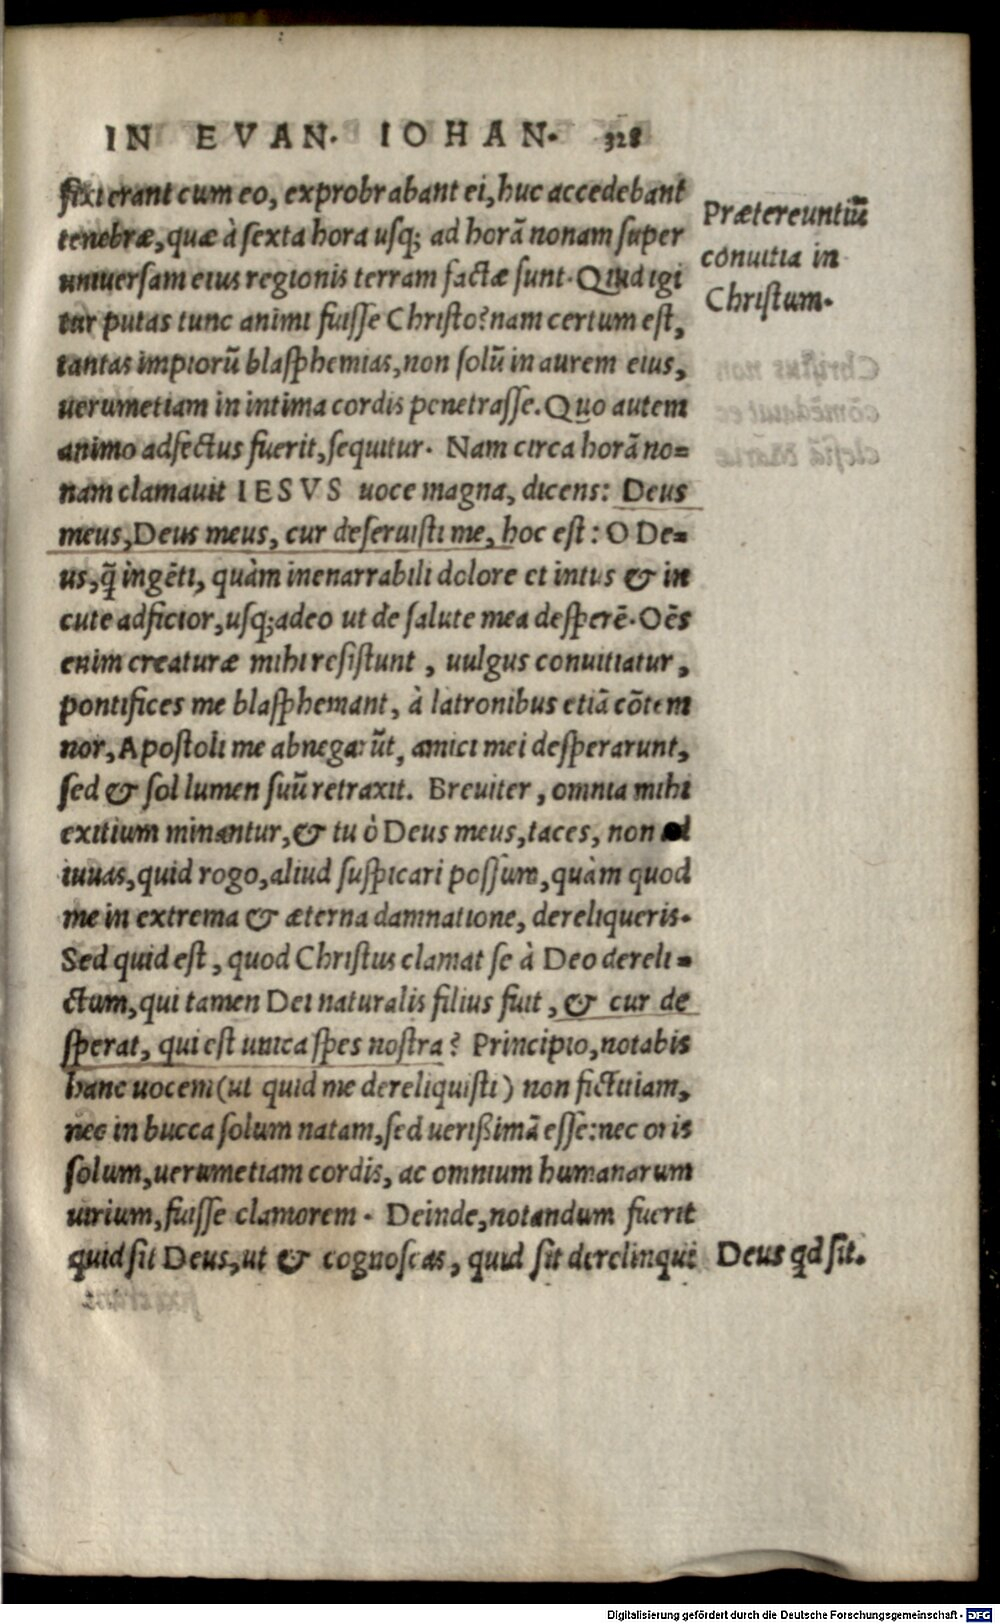 IN EVAN. IOHAN. 328
fixi erant cum eo, exprobrabant ei, huc accedebant
tenebræ, quæ à sexta hora usq; ad horã nonam super
uniuersam eius regionis terram factæ sunt. Quid igi
tur putas tunc animi fuisse Christo? nam certum est,
tantas impiorũ blasphemias, non solũ in aurem eius,
uerumetiam in intima cordis penetrasse. Quo autem
animo adfectus fuerit, sequitur. Nam circa horã no=
nam clamauit IESVS uoce magna, dicens: Deus
meus, Deus meus, cur deseruisti me, hoc est: O De=
us, q̃ ingẽti, quàm inenarrabili dolore et intus & in
cute adficior, usq;adeo ut de salute mea desperẽ. Oẽs
enim creaturæ mihi resistunt, uulgus conuitiatur,
pontifices me blasphemant, à latronibus etiã cõtem
nor, Apostoli me abnegarũt, amici mei desperarunt,
sed & sol lumen suũ retraxit. Breuiter, omnia mihi
exitium minantur, & tu ò Deus meus, taces, non
iuuas, quid rogo, aliud suspicari possum, quàm quod
me in extrema & æterna damnatione, dereliqueris.
Sed quid est, quod Christus clamat se à Deo dereli=
ctum, qui tamen Dei naturalis filius fuit, & cur de
sperat, qui est unica spes nostra? Principio, notabis
hanc uocem (ut quid me dereliquisti) non fictitiam,
nec in bucca solum natam, sed uerißimã esse: nec oris
solum, uerumetiam cordis, ac omnium humanarum
uirium, fuisse clamorem. Deinde, notandum fuerit
quid sit Deus, ut & cognoscas, quid sit derelinqui
Prætereuntiũ
conuitia in
Christum.
Deus qd sit.
Digitalisierung gefördert durch die Deutsche Forschungsgemeinschaft - DFG